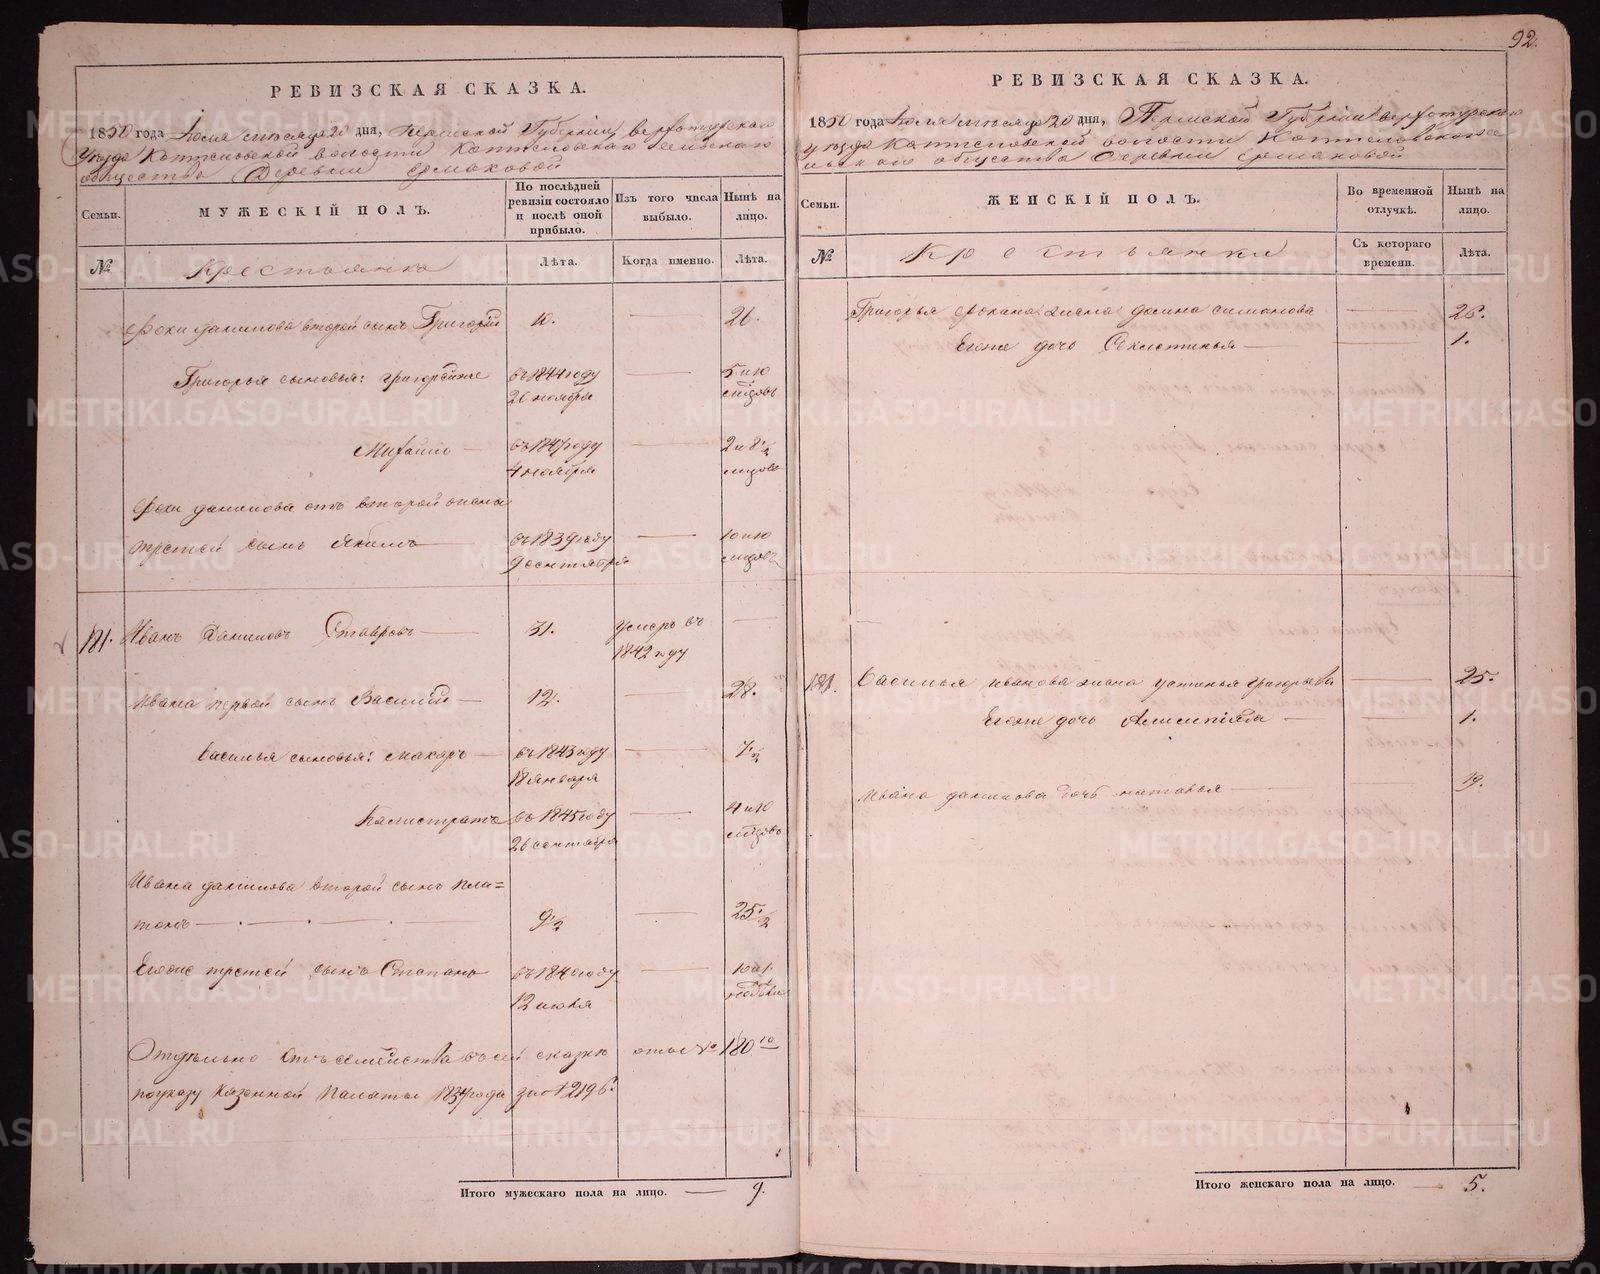 92.
РЕВИЗСКАЯ СКАЗКА.
1850 года Июля месяца 20 дня, Пермской Губернии, верхотурскаго
уезда Коптеловской волости Коптеловскаго сельскаго
общества Деревни Ермаковой
Семьи.
МУЖЕСКІЙ ПОЛЪ.
По послѣдней ревизіи состояло и послѣ оной прибыло.
Изъ того числа выбыло.
Нынѣ на лицо.
№
Крестьяне
Лѣта.
Когда именно.
Лѣта.
Фоки данилова второй сынъ Григорей 10. 26.
Григорья сыновья: григорей же въ 1844 году 5 и 10
26 ноября
Михайло въ 1847 году 2 и 8 1/2
4 ноября
Фоки данилова отъ второй жены
третей сынъ Якимъ въ 1839 году 10 и 10
9 сентября
181. Иванъ Даниловъ Ставровъ 31. умеръ въ
1842 году
Ивана первой сынъ Василей 12. 28.
Василья сыновья: Макаръ въ 1843 году 7 1/2
18 января
Калистратъ въ 1845 году 4 и 10
26 сентября
Ивана данилова второй сынъ пла=
тонъ 9 1/2 25 1/2
Егоже третей сынъ Степанъ въ 1840 году 10 и 1
12 июня
Отдельно отъ семейства въ сей сказке 180
по указу Казенной Палаты 1834 года за № 12196.
Итого мужескаго пола на лицо. 9.
РЕВИЗСКАЯ СКАЗКА.
1850 года Июля месяца 20 дня, Пермской Губерніи верхотурскаго
уезда Коптеловской волости Коптеловскаго се
льскаго общества Деревни Ермаковой
Семьи.
ЖЕНСКІЙ ПОЛЪ.
Во временной отлучкѣ.
Нынѣ на лицо.
№
Крестьянки
Съ котораго времени.
Лѣта.
Григорья Фокина жена домна симонова 26.
Егоже дочь Секлетинья 1.
181. Василья иванова жена устинья григорьева 25.
Егоже дочь 1.
Ивана данилова дочь 19.
Итого женскаго пола на лицо. 5.
METRIKI.GASO-URAL.RU